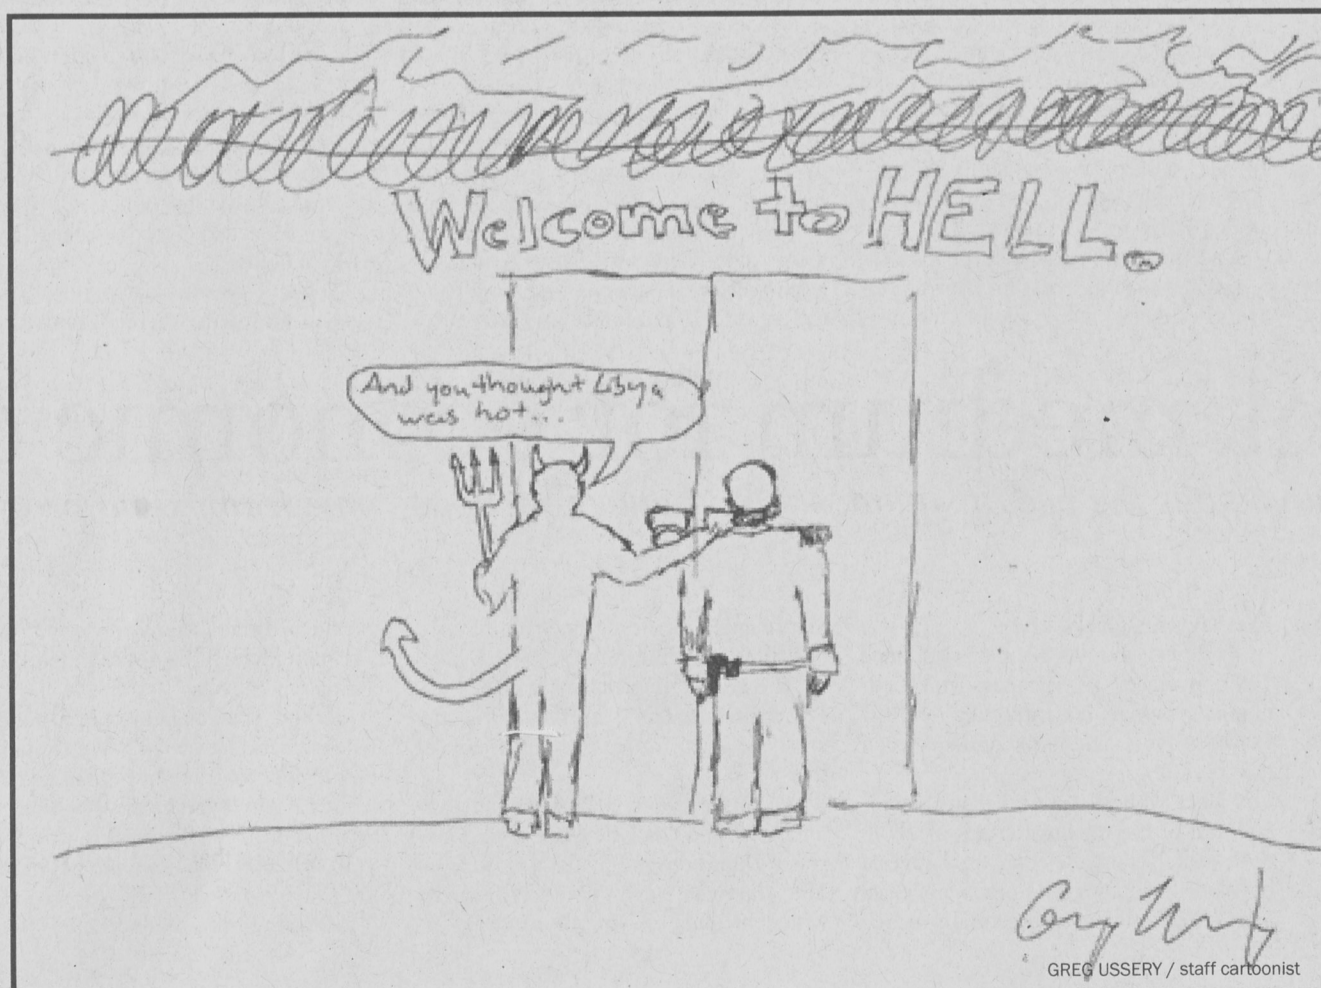 Welcome to HELL.™
And you thought Libya
was hot...
Greg Ussery
GREG USSERY / staff cartoonist